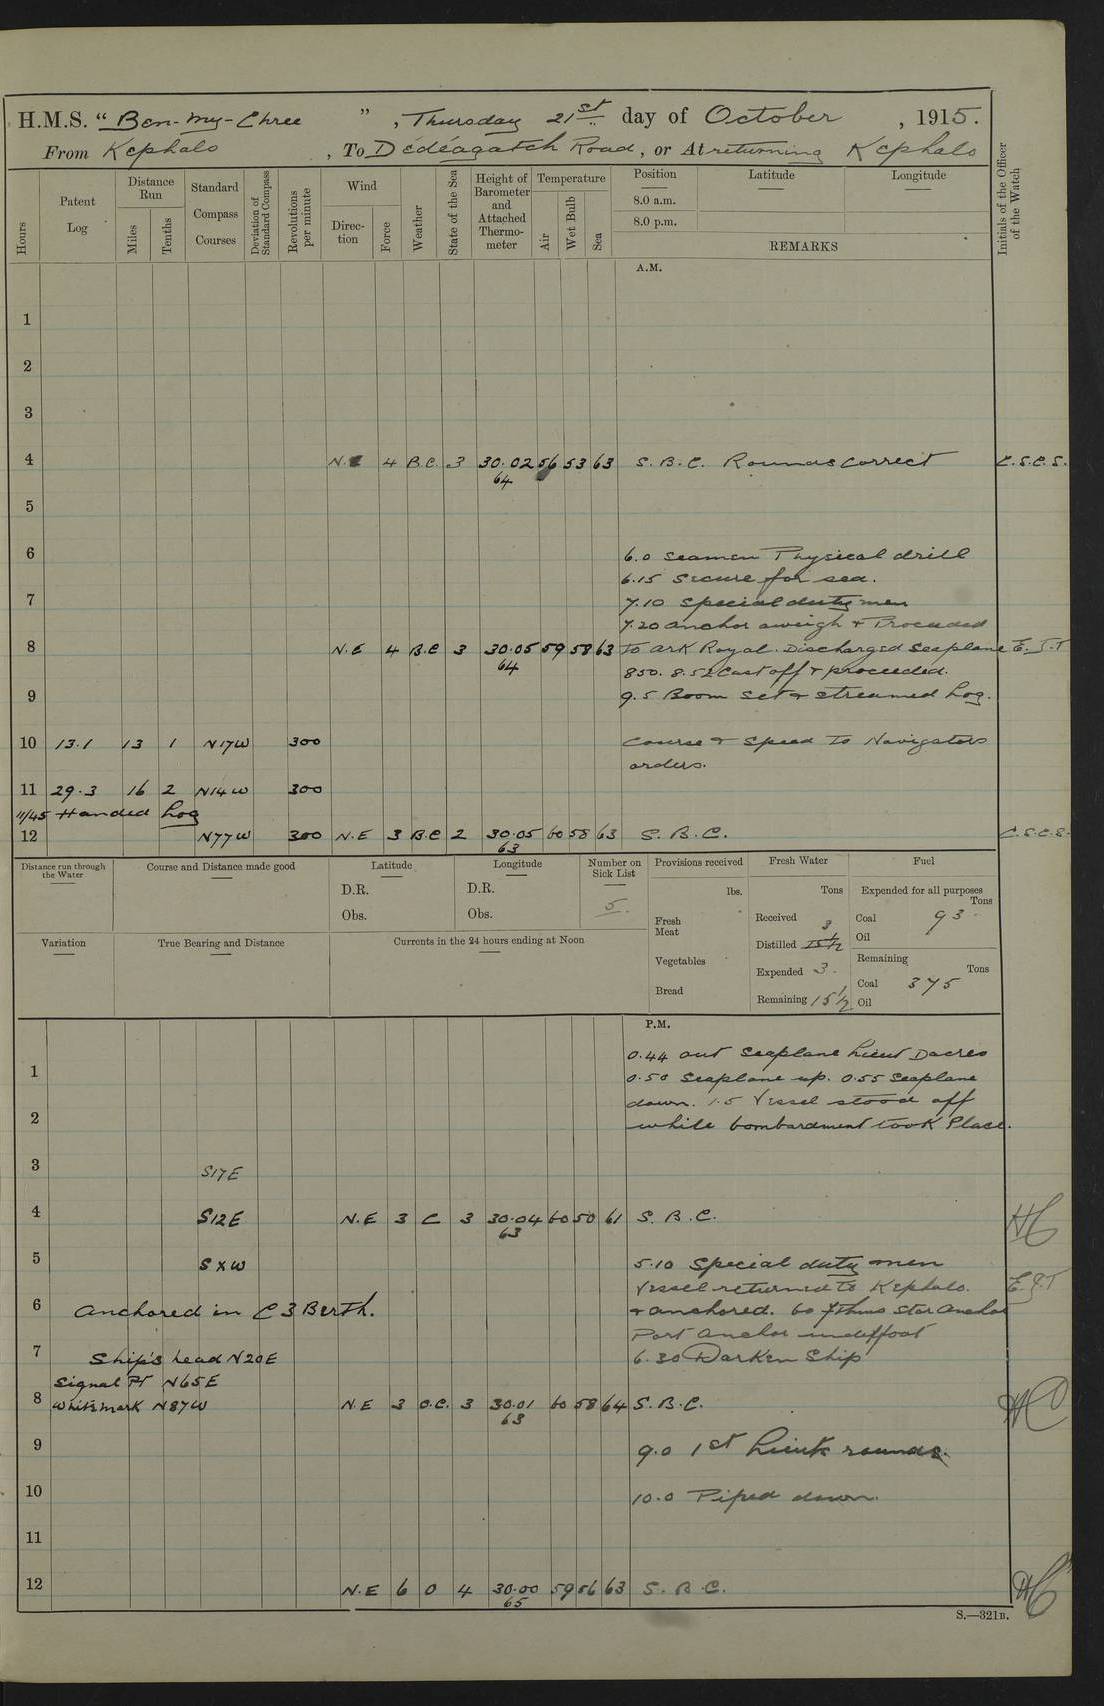 H.M.S. “ Ben-my-Chree ” , Thursday 21st day of October , 1915.
From Kephalo , To Dédéagatch Road , or At returning Kephalo
Hours
Patent Log
Distance Run
Miles
Tenths
Standard Compass Courses
Deviation of Standard Compass
Revolutions per minute
Wind
Direction
Force
Weather
State of the Sea
Height of Barometer and Attached Thermometer
Temperature
Air
Wet Bulb
Sea
Position
8.0 a.m.
8.0 p.m.
Latitude
Longitude
REMARKS
Initials of the Officer of the Watch
A.M.
1
2
3
4 N.E 4 B.C. 3 30.02 56 53 63 S. B. C. Rounds correct C.S.C.S.
64
5
6 6.0 Seamen Physical drill
6.15 Secure for sea.
7 7.10 Special duty men
7.20 anchor aweigh & Proceeded
8 N.E 4 B.C 3 30.05 59 58 63 to Ark Royal. Discharged Seaplane E.J.T
64 850. 8.52 Cast off & proceeded.
9 9.5 Boom set & streamed Log.
10 13.1 13 1 N17W 300 Course & Speed to Navigators
orders.
11 29.3 16 2 N14W 300
11/45 Handed Log
12 N77W 300 N.E 3 B.C 2 30.05 60 58 63 S. B. C. C.S.C.S.
63
Distance run through the Water
Course and Distance made good
Latitude
D.R.
Obs.
Longitude
D.R.
Obs.
Number on Sick List
5.
Provisions received
lbs.
Fresh Meat
Vegetables
Bread
Fresh Water
Tons
Received
Distilled 15½ 3
Expended 3.
Remaining 15½
Fuel
Expended for all purposes
Tons
Coal 93.
Oil
Remaining
Tons
Coal 375
Oil
Variation
True Bearing and Distance
Currents in the 24 hours ending at Noon
P.M.
0.44 out Seaplane Lieut Dacres
1 0.50 Seaplane up. 0.55 Seaplane
down. 1.5 Vessel stood off
2 while bombardment took Place.
3 S17E
4 S12E N.E 3 C 3 30.04 60 50 61 S. B. C.
63
5 S x W 5.10 Special duty men
Vessel returned to Kephalo. E.J.T
6 Anchored in C3 Berth. & anchored. 60 Star Anchor
Port Anchor
7 Ship's head N20E 6.30 Darken Ship
Signal Pt N65E
8 N87W N.E 3 O.C. 3 30.01 60 58 64 S. B. C.
63
9 9.0 1st Lieuts rounds.
10 10.0 Piped down.
11
12 N.E 6 O 4 30.00 59 56 63 S. B. C.
65
S.—321B.